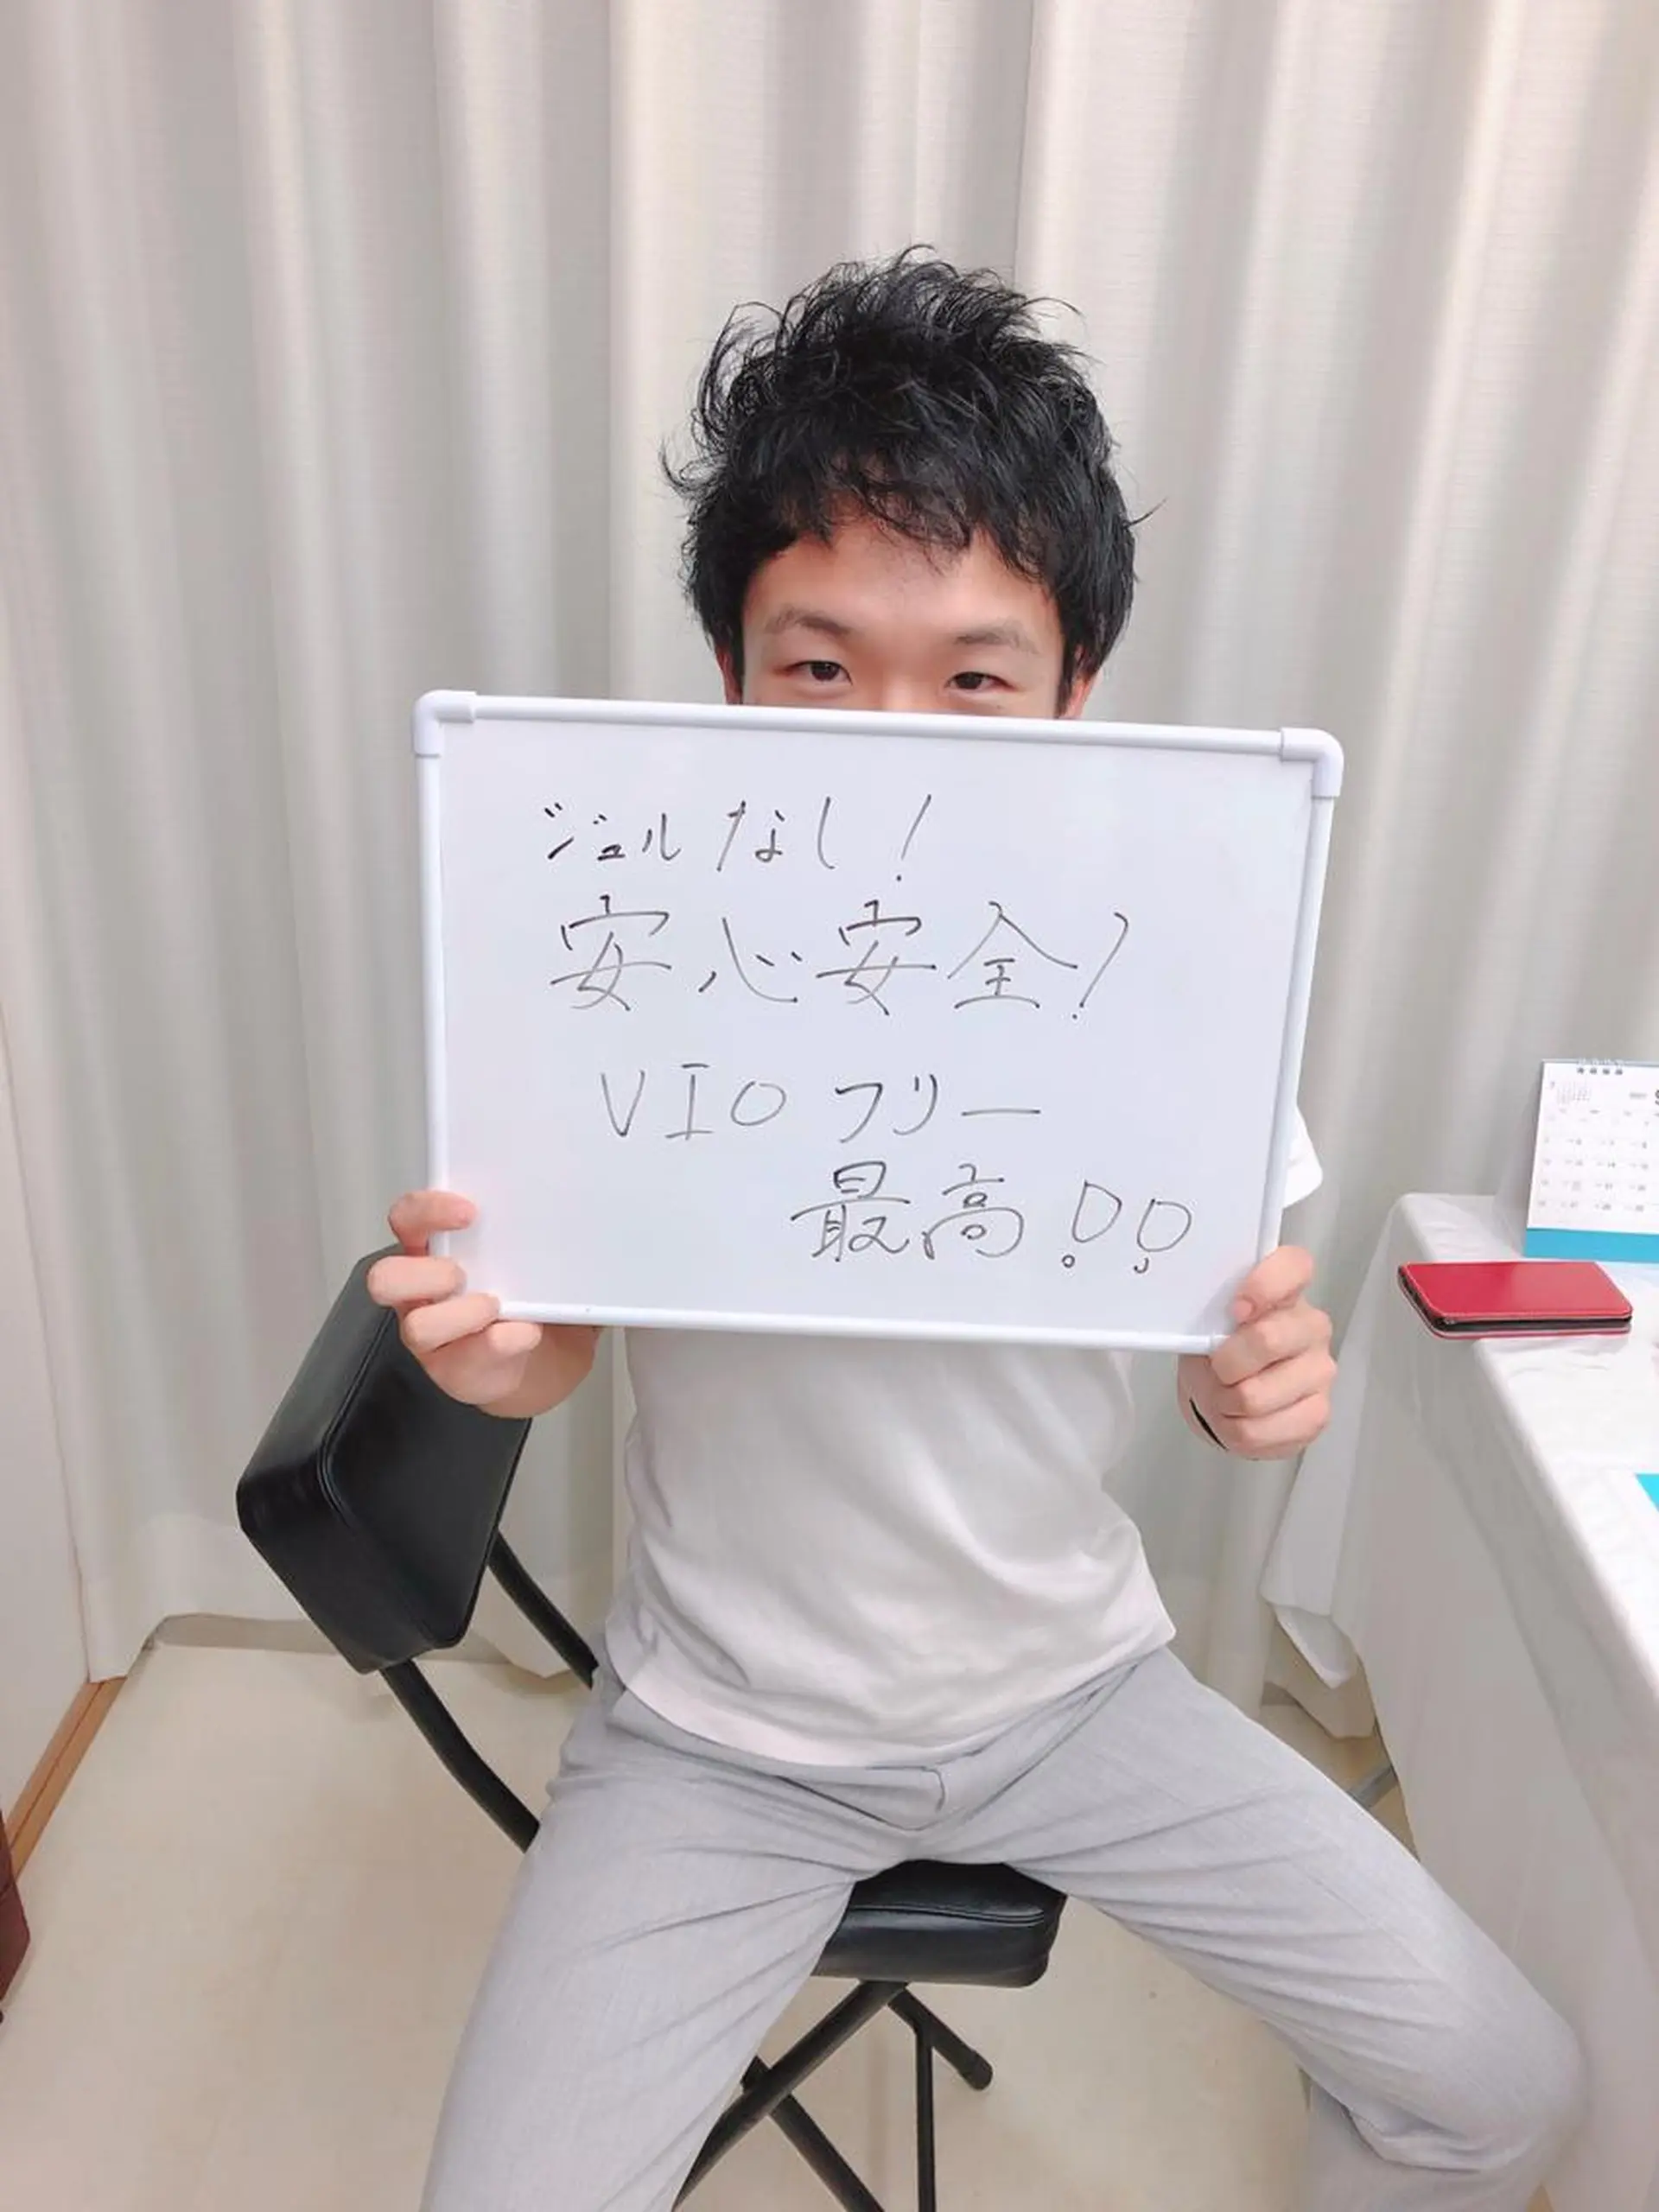 ジェルなし!
安心安全!
VIOフリー
最高!!